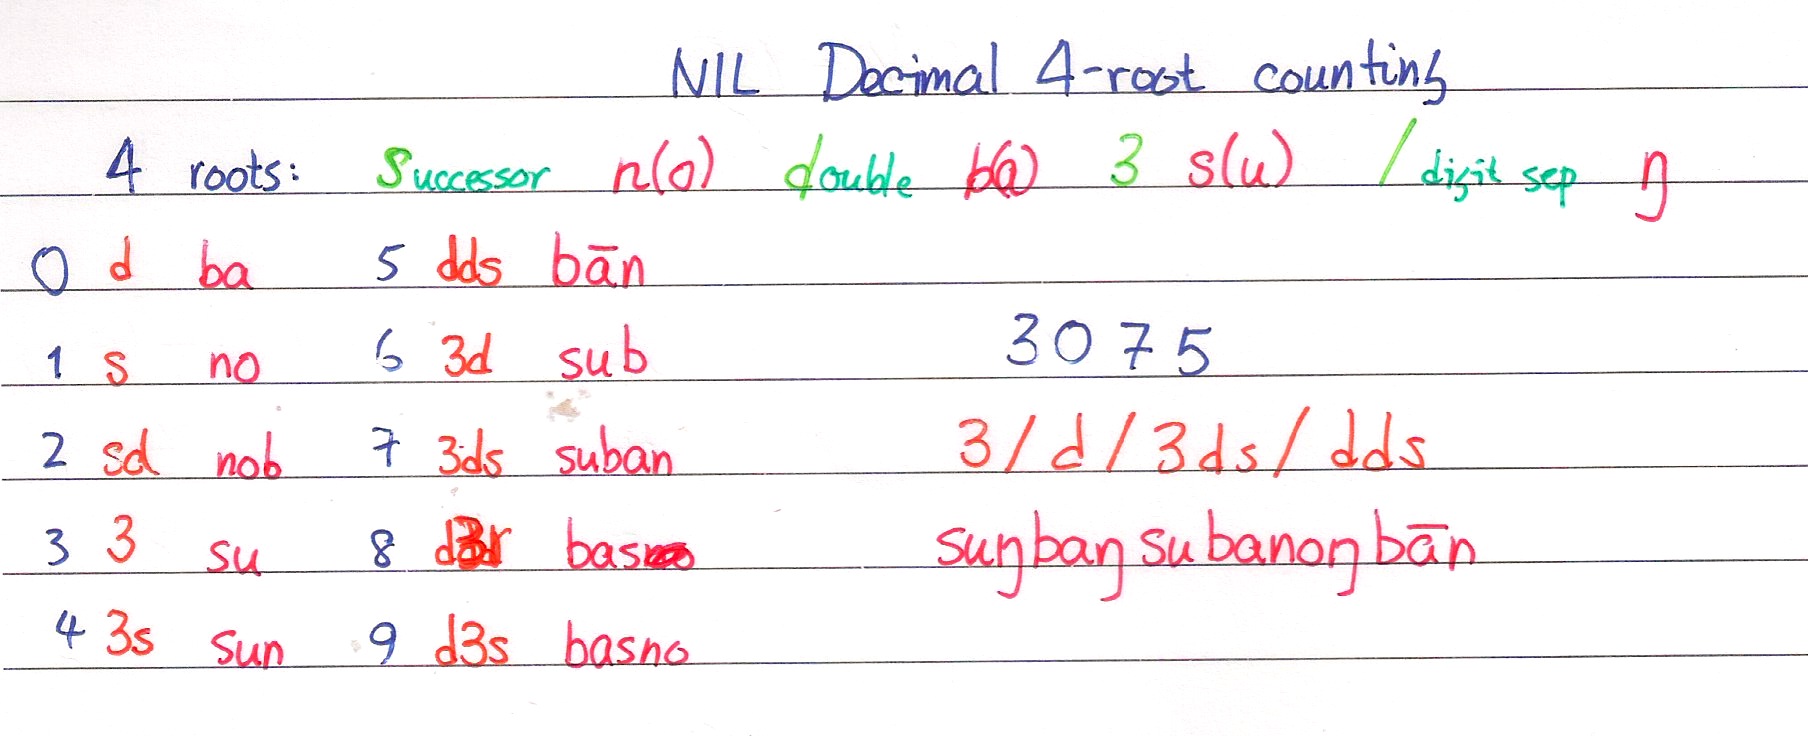 NIL Decimal 4-root counting
4 roots: Successor n(o) double b(a) 3 s(u) / digit sep ŋ
0 d ba 5 dds bān
1 s no 6 3d sub 3075
2 sd nob 7 3ds suban 3/d/3ds/dds
3 3 su 8 bas suŋbaŋsubanoŋbān
4 3s sun 9 d3s basno